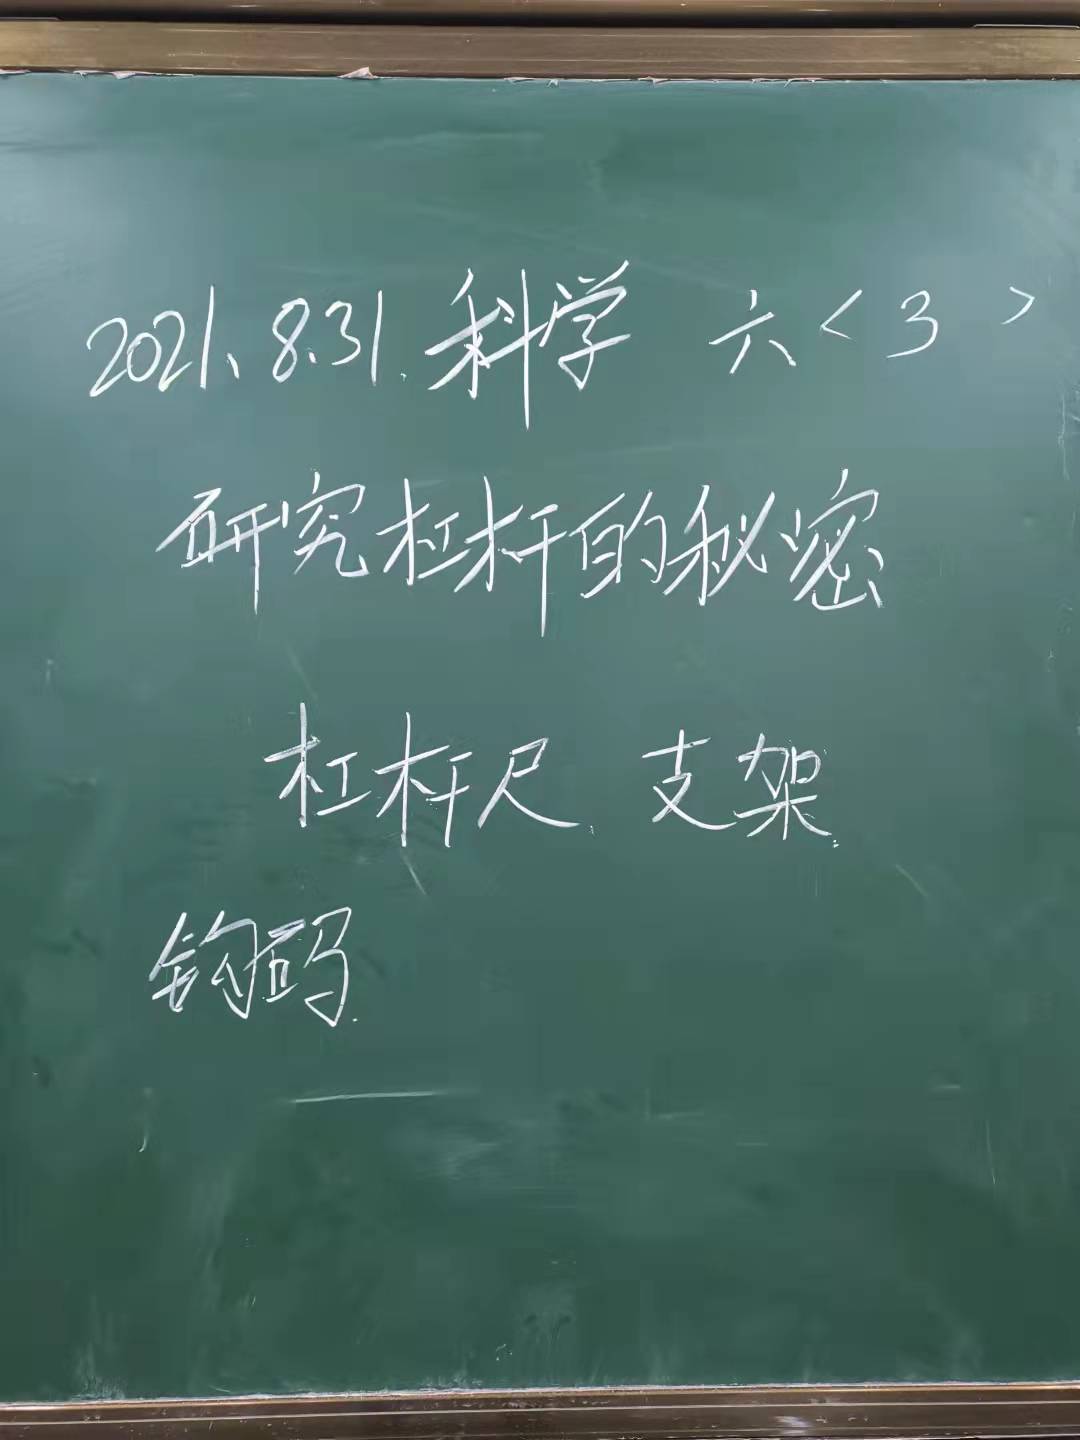 2021、8.31.科学 六<3>
研究杠杆的秘密
杠杆尺、支架.
钩码.